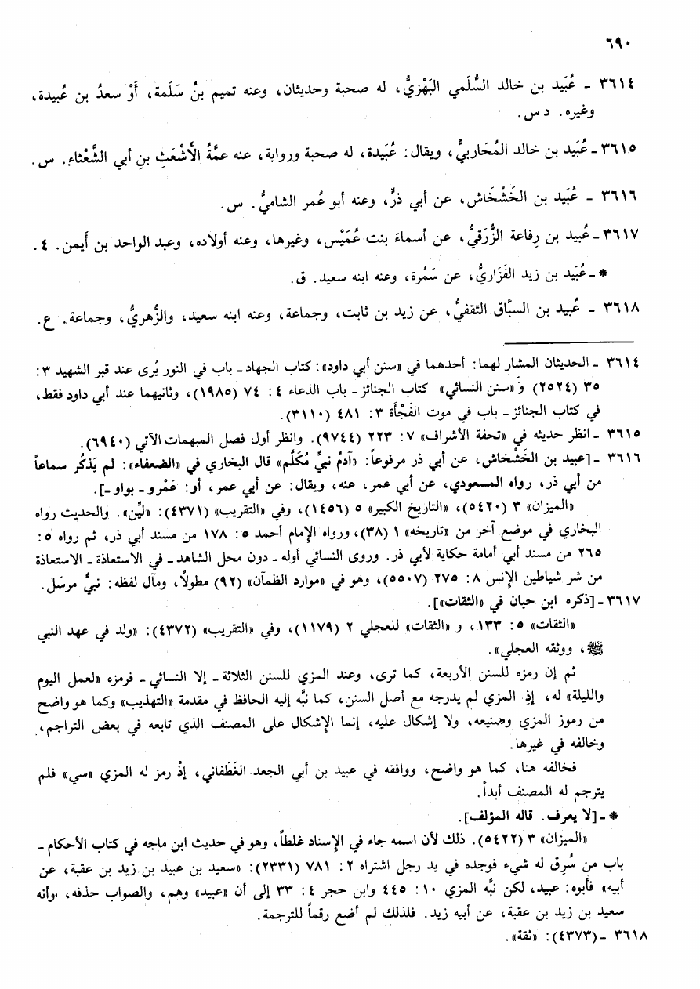 ٦٩٠
٣٦١٤ - عُبَيد بن خالد السُّلَمي البَهْزيُّ، له صحبة وحديثان، وعنه تميم بنُ سَلَمة، أَوْ سعدُ بن عُبيدة،
وغيره. د س.
٣٦١٥ - عُبَيد بن خالد المُحَاربيُّ، ويقال: عُبَيدة، له صحبة ورواية، عنه عمَّةُ الأشْعَثِ بنِ أبي الشَّعْثاء. س.
٣٦١٦ - عُبَيد بن الخَشْخَاش، عن أبي ذرٍّ، وعنه أبو عُمر الشاميُّ. س.
٣٦١٧ - عُبيد بن رِفاعة الزُّرَقيُّ، عن أسماءَ بنت عُمَيْس، وغيرها، وعنه أولاده، وعبد الواحد بن أيمن. ٤.
* - عُبَيد بن زيد الفَزَاريُّ، عن سَمُرة، وعنه ابنه سعيد. ق.
٣٦١٨ - عُبيد بن السبَّاق الثقفيُّ، عن زيد بن ثابت، وجماعة، وعنه ابنه سعيد، والزُّهريُّ، وجماعة. ع.
٣٦١٤ - الحديثان المشار لهما: أحدهما في «سنن أبي داود»: كتاب الجهاد - باب في النور يُرى عند قبر الشهيد ٣:
٣٥ (٢٥٢٤) و«سنن النسائي» كتاب الجنائز - باب الدعاء ٤: ٧٤ (١٩٨٥)، وثانيهما عند أبي داود فقط،
في كتاب الجنائز - باب في موت الفَجْأة ٣: ٤٨١ (٣١١٠).
٣٦١٥ - انظر حديثه في «تحفة الأشراف» ٧: ٢٢٣ (٩٧٤٤). وانظر أول فصل المبهمات الآتي (٦٩٤٠).
٣٦١٦ - [عبيد بن الخَشْخَاش، عن أبي ذر مرفوعاً: «آدمُ نبيٌّ مُكَلَّم» قال البخاري في «الضعفاء»: لم يَذكُر سماعاً
من أبي ذر، رواه المسعودي، عن أبي عمر، عنه، ويقال: عن أبي عمر، أو: عَمْرو - بواو -].
«الميزان» ٣ (٥٤٢٠)، «التاريخ الكبير» ٥ (١٤٥٦)، وفي «التقريب» (٤٣٧١): «ليّن». والحديث رواه
البخاري في موضع آخر من «تاريخه» ١ (٣٨)، ورواه الإمام أحمد ٥: ١٧٨ من مسند أبي ذر، ثم رواه ٥:
٢٦٥ من مسند أبي أمامة حكاية لأبي ذر. وروى النسائي أوله - دون محل الشاهد - في الاستعاذة - الاستعاذة
من شر شياطين الإنس ٨: ٢٧٥ (٥٥٠٧)، وهو في «موارد الظمآن» (٩٢) مطولاً، ومآل لفظه: نبيٌّ مرسَل.
٣٦١٧ - [ذكره ابن حبان في «الثقات»].
«الثقات» ٥: ١٣٣، و «الثقات» للعجلي ٢ (١١٧٩)، وفي «التقريب» (٤٣٧٢): «ولد في عهد النبي
ﷺ، ووثقه العجلي».
ثم إن رمزه للسنن الأربعة، كما ترى، وعند المزي للسنن الثلاثة - إلا النسائي - فرمزه «لعمل اليوم
والليلة» له، إذِ المزي لم يدرجه مع أصل السنن، كما نبَّه إليه الحافظ في مقدمة «التهذيب» وكما هو واضح
من رموز المزي وصنيعه، ولا إشكال عليه، إنما الإشكال على المصنف الذي تابعه في بعض التراجم،
وخالفه في غيرها.
فخالفه هنا، كما هو واضح، ووافقه في عبيد بن أبي الجعد الغَطَفاني، إذْ رمز له المزي «سي» فلم
يترجم له المصنف أبداً.
* - [لا يعرف. قاله المؤلف].
«الميزان» ٣ (٥٤٢٢). ذلك لأن اسمه جاء في الإسناد غلطاً، وهو في حديث ابن ماجه في كتاب الأحكام -
باب من سُرق له شيء فوجده في يد رجل اشتراه ٢: ٧٨١ (٢٣٣١): «سعيد بن عبيد بن زيد بن عقبة، عن
أبيه» فأبوه: عبيد، لكن نبَّه المزي ١٠: ٤٤٥ وابن حجر ٤: ٣٣ إلى أن «عبيد» وهم، والصواب حذفه، وأنه
سعيد بن زيد بن عقبة، عن أبيه زيد. فلذلك لم أضع رقماً للترجمة.
٣٦١٨ - (٤٣٧٣): «ثقة».